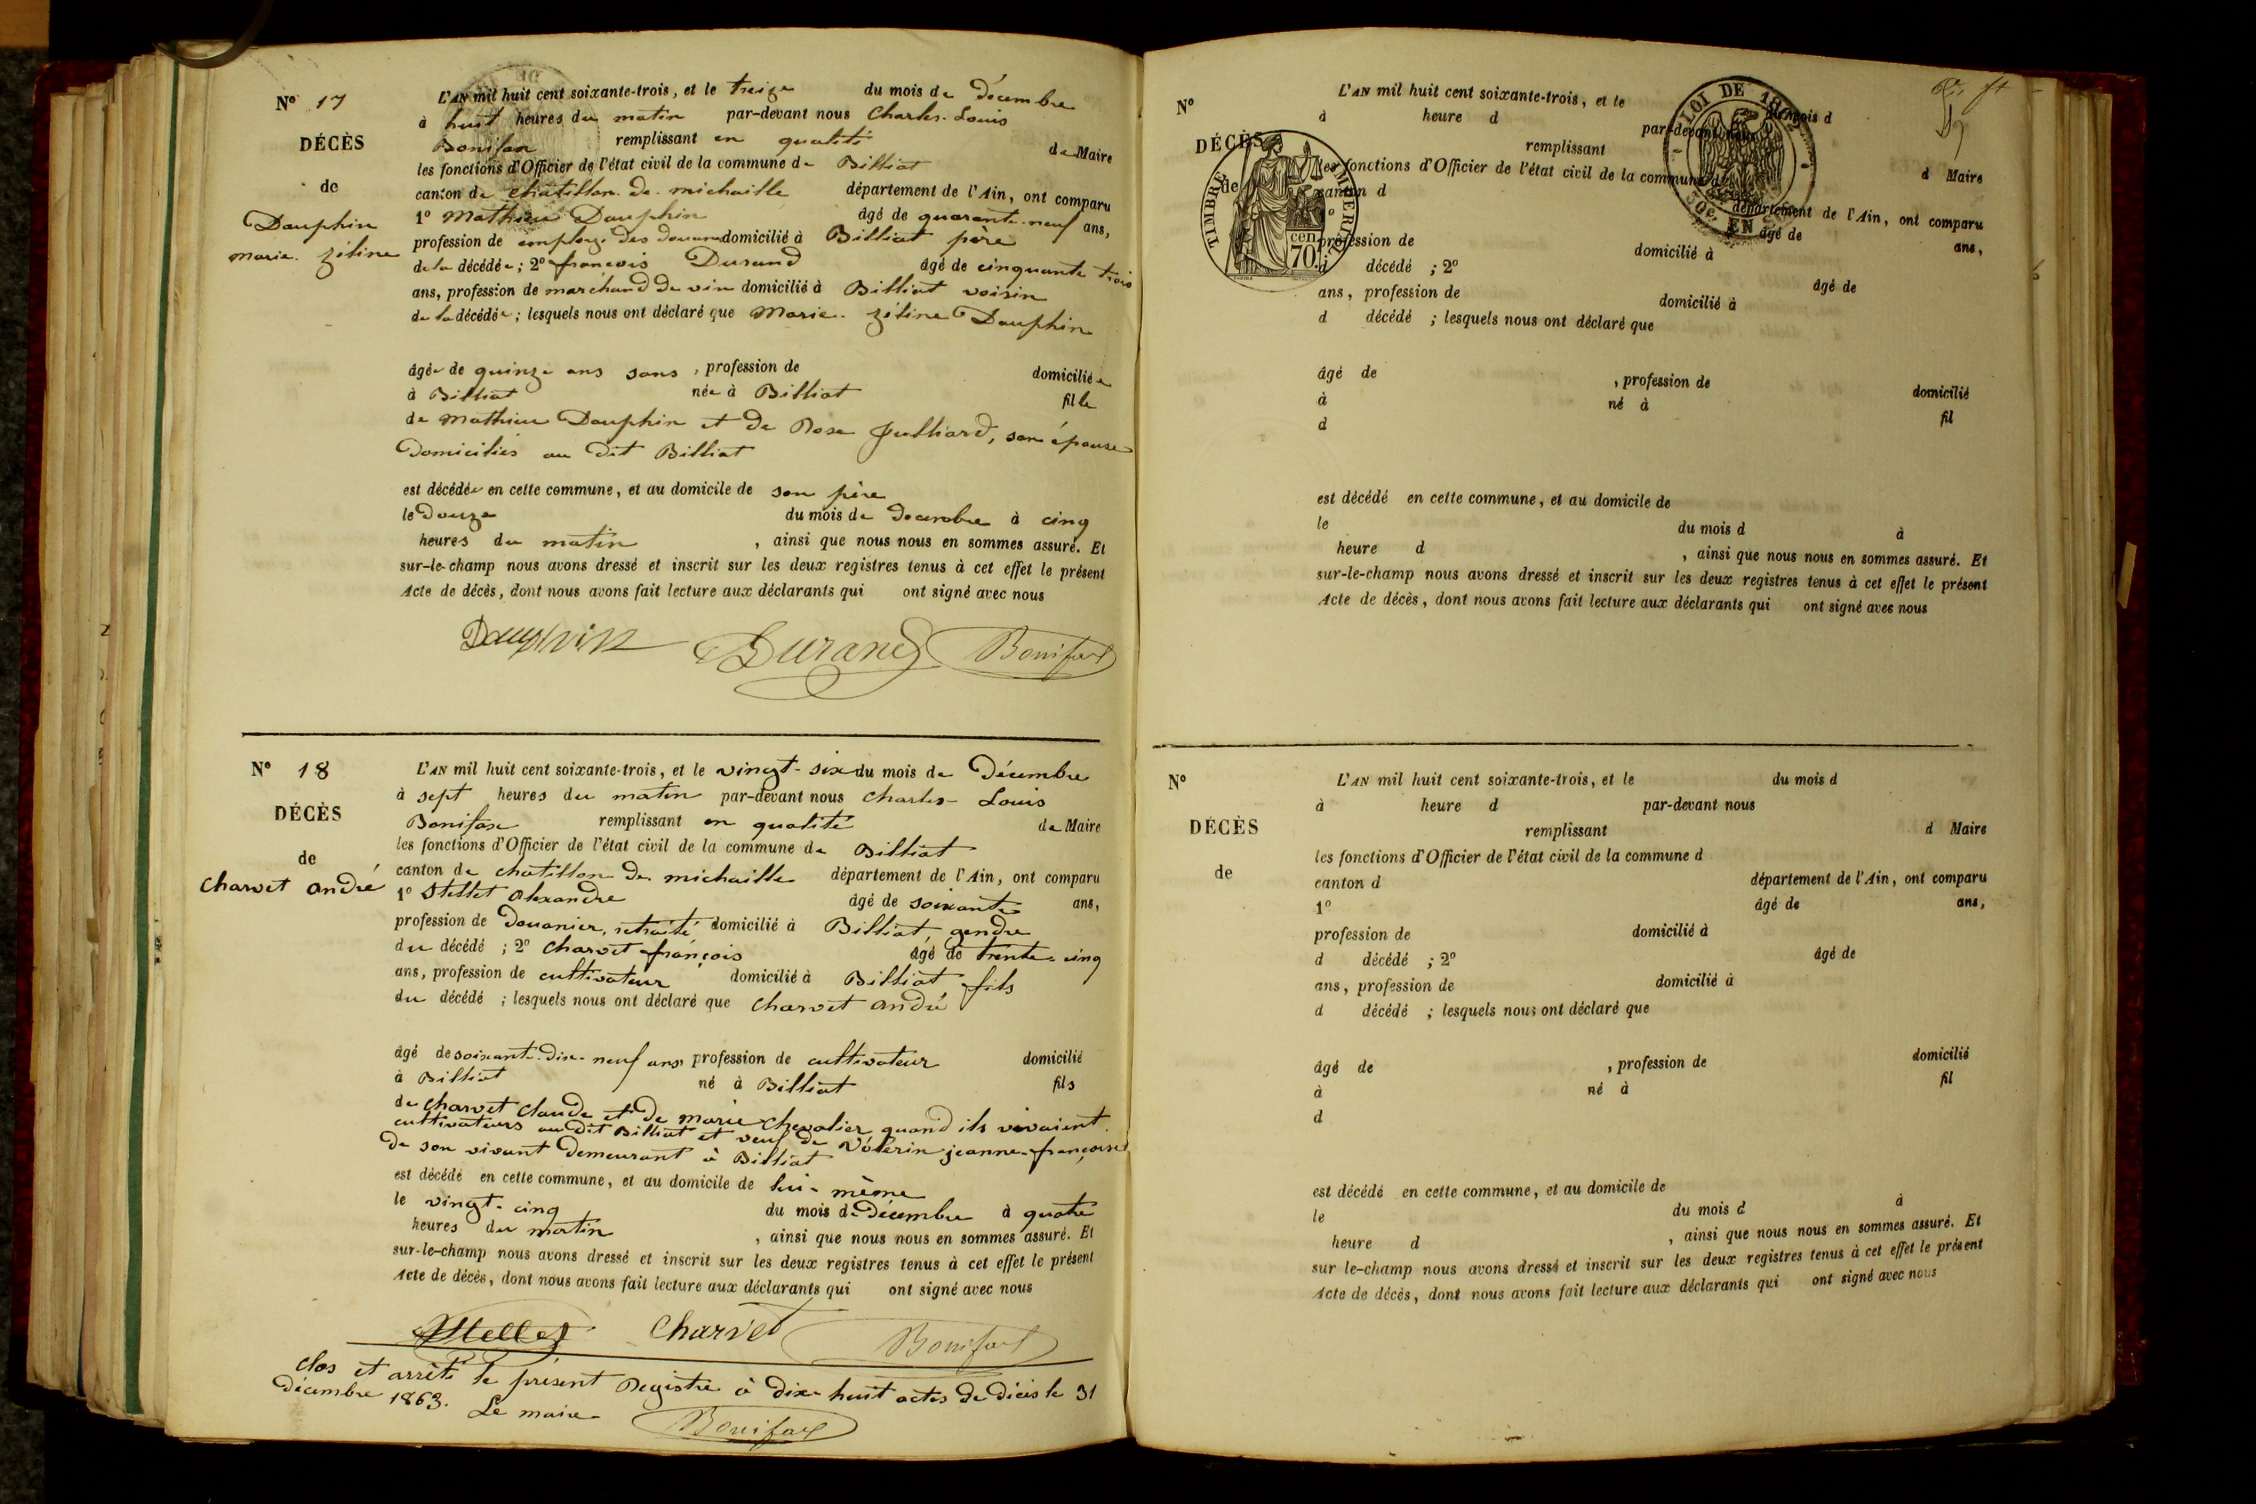 N° 17
DÉCÈS
de
Dauphin
marie. zéline
L'AN mil huit cent soixante-trois, et le treize du mois de décembre
à huit heures du matin par-devant nous Charles-Louis
Bonifax remplissant en qualité de Maire
les fonctions d'Officier de l'état civil de la commune de Billiat
canton de chatillon. de. michaille département de l'Ain, ont comparu
1° Mathieu Dauphin âgé de quarante-neuf ans,
profession de employé des douanes domicilié à Billiat père
de la décédée; 2° françois Durand âgé de cinquante trois
ans, profession de marchand de vin domicilié à Billiat voisin
de la décédée; lesquels nous ont déclaré que Marie. zéline Dauphin
âgée de quinze ans sans, profession de domiciliée
à Billiat née à Billiat fille
de Mathieu Dauphin et de Rose Julliard, son épouse
Domiciliés au dit Billiat
est décédée en cette commune, et au domicile de son père
le Douze du mois de Decembre à cinq
heures du matin, ainsi que nous nous en sommes assuré. Et
sur-le-champ nous avons dressé et inscrit sur les deux registres tenus à cet effet le présent
Acte de décès, dont nous avons fait lecture aux déclarants qui ont signé avec nous
Dauphin Durand Bonifax
N° 18
DÉCÈS
de
Charvet andré
L'AN mil huit cent soixante-trois, et le vingt-six du mois de Décembre
à sept heures du matin par-devant nous Charles-Louis
Bonifax remplissant en qualité de Maire
les fonctions d'Officier de l'état civil de la commune de Billiat
canton de chatillon de michaille département de l'Ain, ont comparu
1° Stellet Alexandre âgé de soixante ans,
profession de Douanier, retraité domicilié à Billiat, gendre
du décédé; 2° Charvet françois âgé de trente-cinq
ans, profession de cultivateur domicilié à Billiat fils
du décédé; lesquels nous ont déclaré que Charvet André
âgé de soixante-dix-neuf ans profession de cultivateur domicilié
à Billiat né à Billiat fils
de Charvet Claude et de Marie Chevalier quand ils vivaient
cultivateurs au dit Billiat et veuf de Vólerin jeanne-françoise
de son vivant demeurant à Billiat
est décédé en cette commune, et au domicile de lui-même
le vingt-cinq du mois de Décembre à quatre
heures du matin, ainsi que nous nous en sommes assuré. Et
sur-le-champ nous avons dressé et inscrit sur les deux registres tenus à cet effet le présent
Acte de décès, dont nous avons fait lecture aux déclarants qui ont signé avec nous
Stellet Charvet Bonifax
Clos et arrêté le présent Registre à dix-huit actes de décès le 31
décembre 1863. Le maire
Bonifax
N°
DÉCÈS
de
TIMBRE IMPÉRIAL
cen 70.
LOI DE 1862
L'AN mil huit cent soixante-trois, et le du mois d
à heure d par-devant nous
remplissant d Maire
les fonctions d'Officier de l'état civil de la commune d
canton d département de l'Ain, ont comparu
1° âgé de ans,
profession de domicilié à
d décédé ; 2° âgé de
ans, profession de domicilié à
d décédé ; lesquels nous ont déclaré que
âgé de , profession de domicilié
à né à fil
d
est décédé en cette commune, et au domicile de
le du mois d à
heure d , ainsi que nous nous en sommes assuré. Et
sur-le-champ nous avons dressé et inscrit sur les deux registres tenus à cet effet le présent
Acte de décès, dont nous avons fait lecture aux déclarants qui ont signé avec nous
N°
DÉCÈS
de
L'AN mil huit cent soixante-trois, et le du mois d
à heure d par-devant nous
remplissant d Maire
les fonctions d'Officier de l'état civil de la commune d
canton d département de l'Ain, ont comparu
1° âgé de ans,
profession de domicilié à
d décédé ; 2° âgé de
ans, profession de domicilié à
d décédé ; lesquels nous ont déclaré que
âgé de , profession de domicilié
à né à fil
d
est décédé en cette commune, et au domicile de
le du mois d à
heure d , ainsi que nous nous en sommes assuré. Et
sur le-champ nous avons dressé et inscrit sur les deux registres tenus à cet effet le présent
Acte de décès, dont nous avons fait lecture aux déclarants qui ont signé avec nous